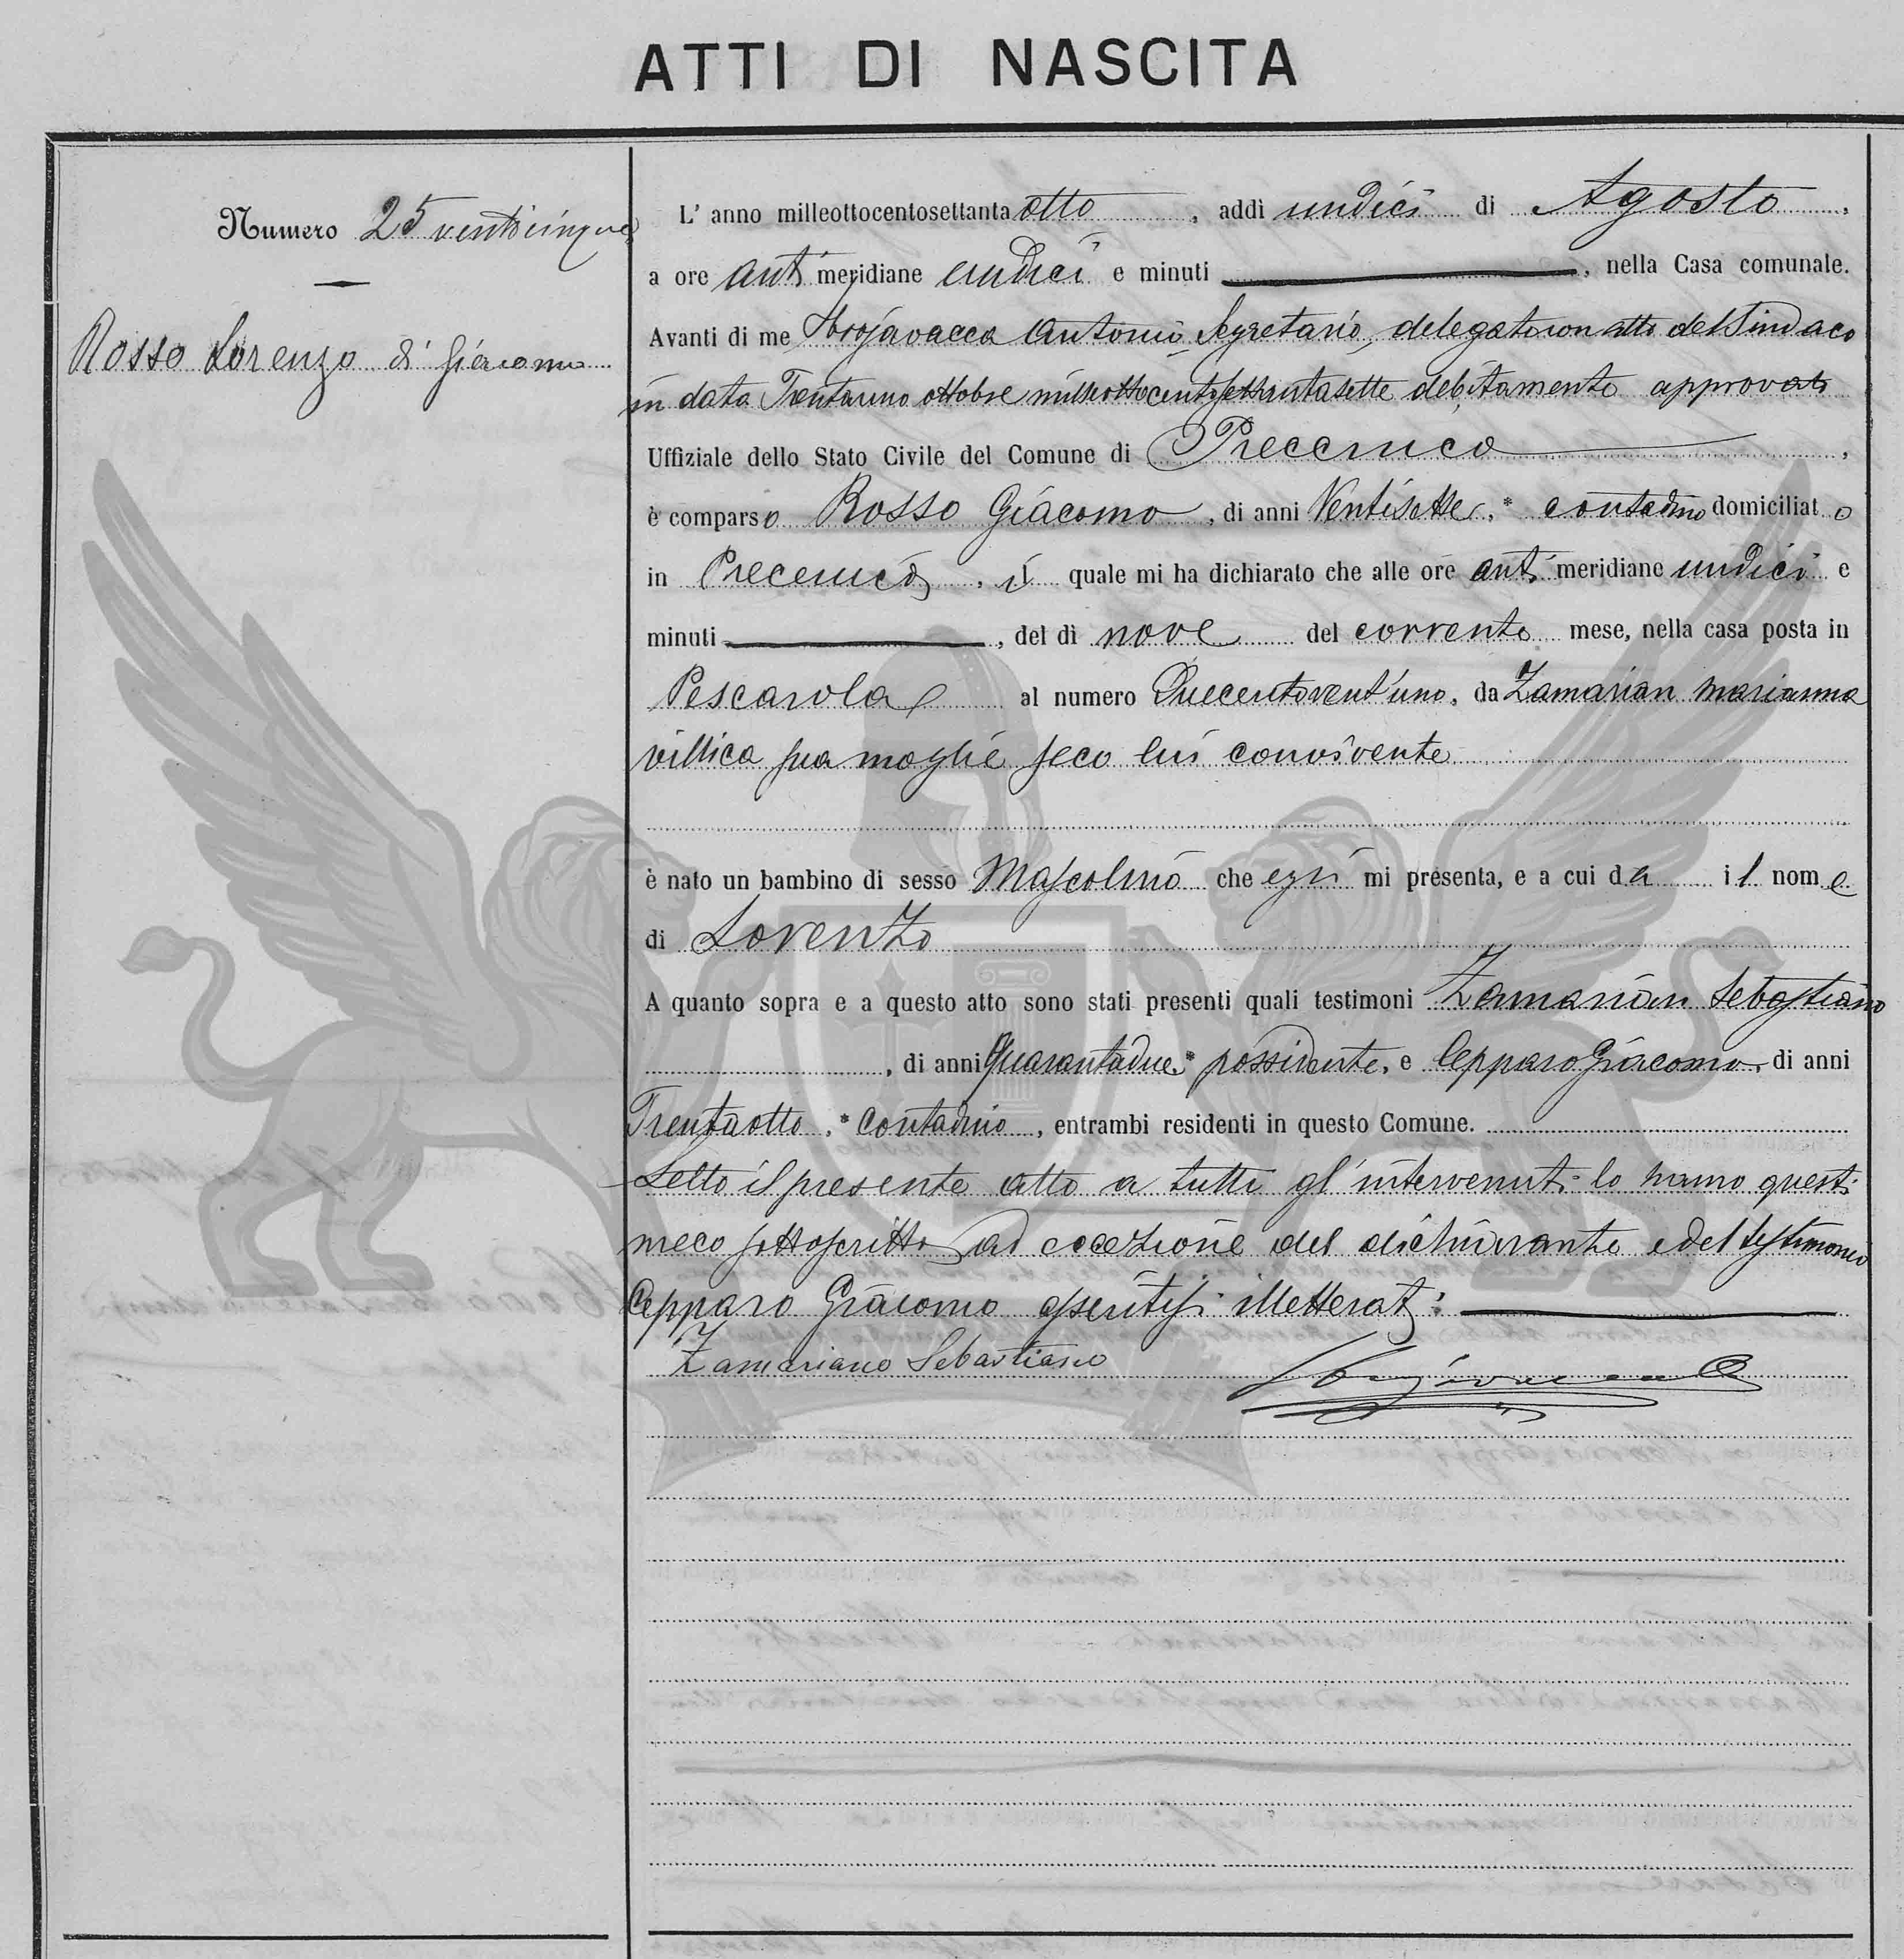 ATTI DI NASCITA
Numero 25 venticinque
Rosso Lorenzo di Giacomo
L' anno milleottocentosettanta otto, addì undici di Agosto,
a ore anti meridiane undici e minuti, nella Casa comunale.
Avanti di me Antonio Segretario, delegato con atto del Sindaco
in data Trentauno ottobre milleottocentosettantasette debitamente approvato
Uffiziale dello Stato Civile del Comune di Precenico,
è comparso Rosso Giacomo, di anni Ventisette, * contadino domiciliato
in Precenico, il quale mi ha dichiarato che alle ore anti meridiane undici e
minuti, del dì nove del corrente mese, nella casa posta in
Pescarola al numero Duecentovent'uno, da Zamarian Marianna
villica sua moglie seco lui convivente
è nato un bambino di sesso Mascolino che egli mi presenta, e a cui da il nome
di Lorenzo
A quanto sopra e a questo atto sono stati presenti quali testimoni Zamarian Sebastiano
, di anni Quarantadue * possidente, e Cepparo Giacomo, di anni
Trentaotto, * Contadino, entrambi residenti in questo Comune.
Letto il presente atto a tutti gl'intervenuti lo hanno questi
meco sottoscritto ad eccezione del dichiarante e del testimonio
Cepparo Giacomo illetterati:
Zamariano Sebastiano